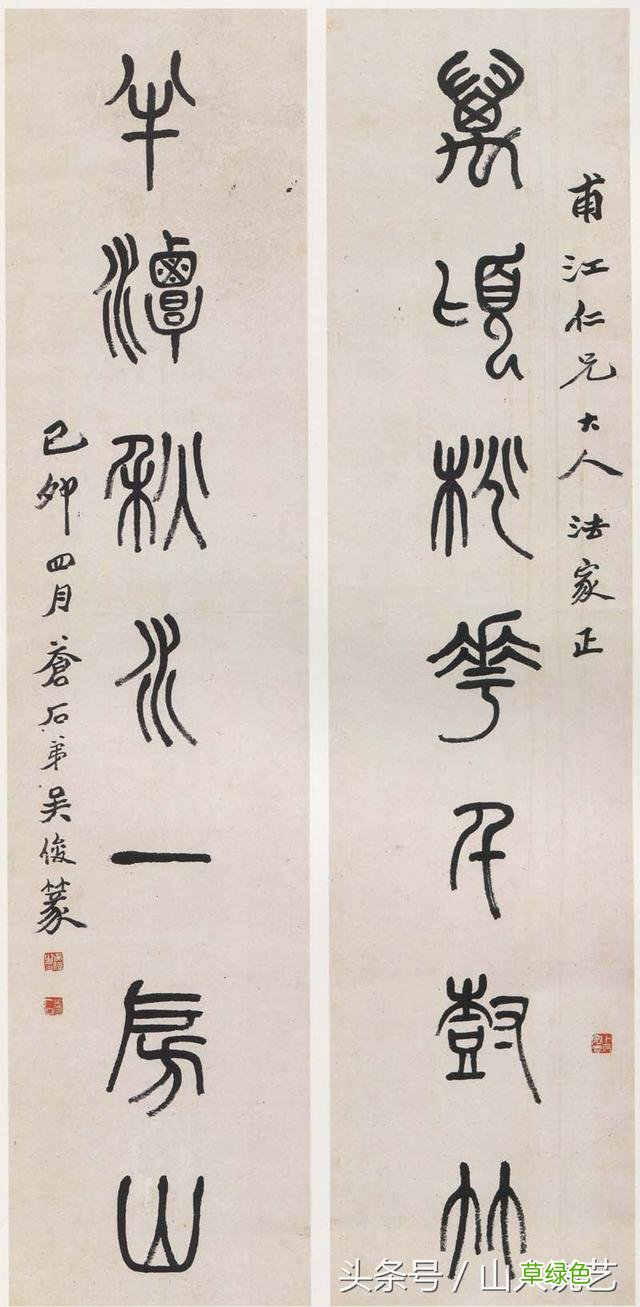 甫江仁兄大人法家正
萬頃桃花千樹竹
半潭秋水一房山
己卯四月蒼石弟吳俊篆
头条号 / 山人说艺
草绿色